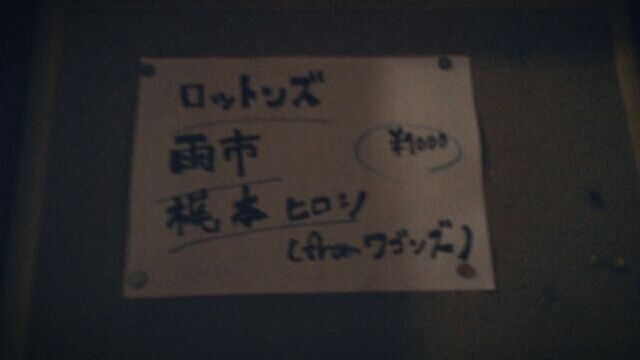 ロットンズ
雨市 ¥1000
梶本 ヒロシ
(from ワゴンズ)